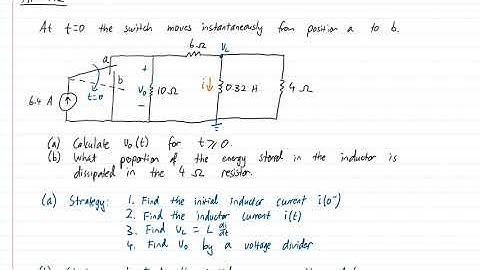 At t=0 the switch moves instantaneously from position a to b.
6 Ω
VL
a
b
t=0
+
Vo
-
10 Ω
i
0.32 H
4 Ω
6.4 A
(a) Calculate Vo(t) for t ≥ 0.
(b) What proportion of the energy stored in the inductor is
dissipated in the 4 Ω resistor.
(a) Strategy: 1. Find the initial inductor current i(0⁻)
2. Find the inductor current i(t)
3. Find VL = L di/dt
4. Find Vo by a voltage divider